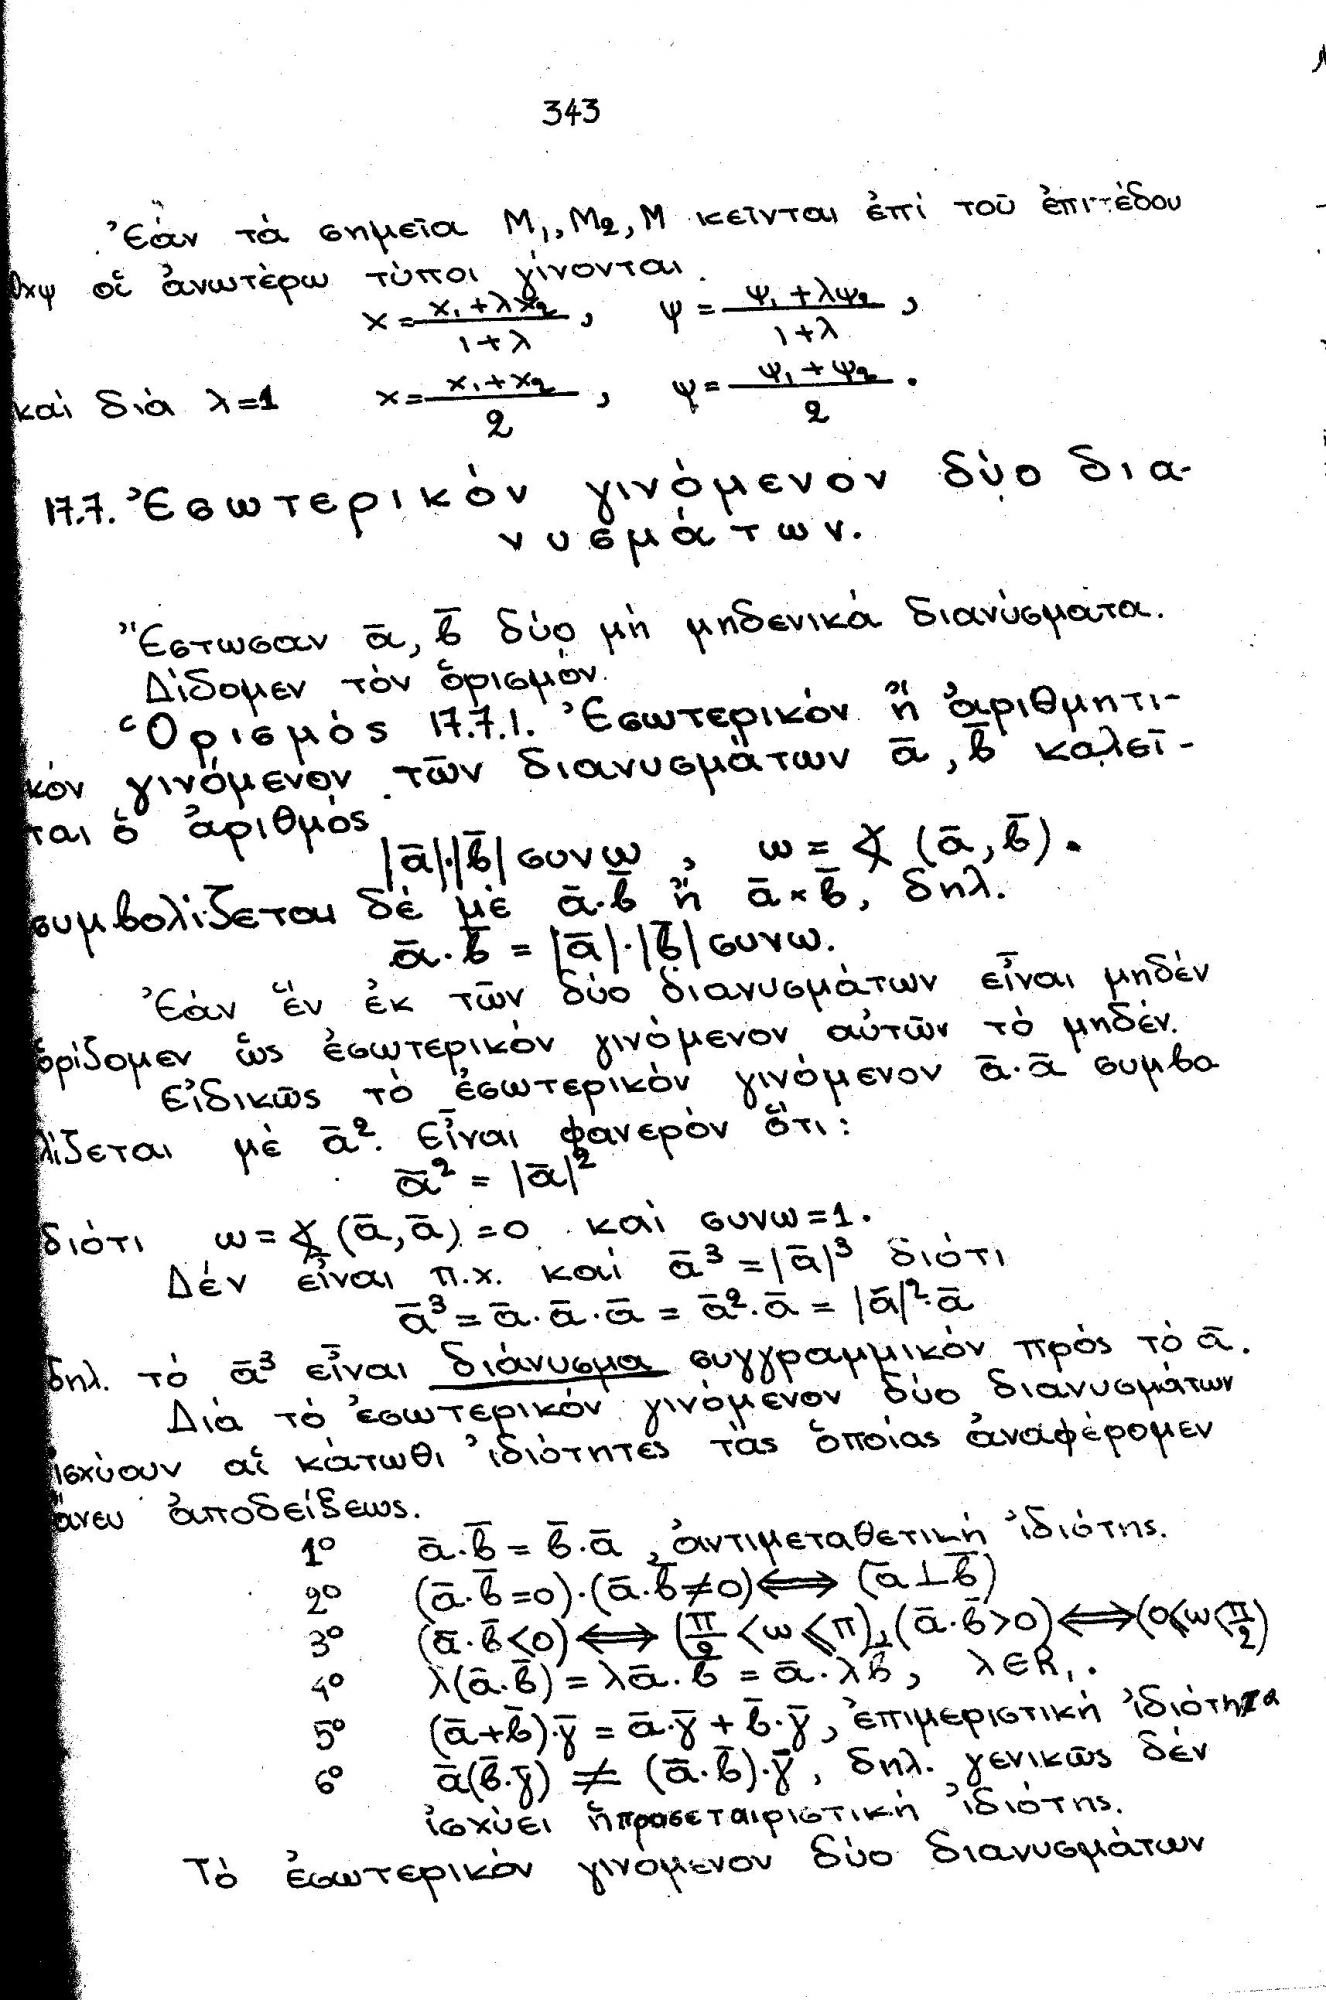 343
Ἐὰν τὰ σημεῖα M₁, M₂, M κεῖνται ἐπὶ τοῦ ἐπιπέδου
Οχψ οἱ ἀνωτέρω τύποι γίνονται
x = (x₁+λx₂)/(1+λ) , ψ = (ψ₁+λψ₂)/(1+λ) ,
καὶ διὰ λ=1 x = (x₁+x₂)/2 , ψ = (ψ₁+ψ₂)/2 .
17.7. Ἐσωτερικὸν γινόμενον δύο δια-
νυσμάτων.
Ἔστωσαν ᾱ, β̄ δύο μὴ μηδενικὰ διανύσματα.
Δίδομεν τὸν ὁρισμόν.
Ὁρισμὸς 17.7.1. Ἐσωτερικὸν ἢ ἀριθμητι-
κὸν γινόμενον τῶν διανυσμάτων ᾱ, β̄ καλεῖ-
ται ὁ ἀριθμὸς
|ᾱ|·|β̄| συνω , ω = ∢ (ᾱ, β̄).
συμβολίζεται δὲ μὲ ᾱ·β̄ ἢ ᾱ×β̄, δηλ.
ᾱ·β̄ = |ᾱ|·|β̄| συνω.
Ἐὰν ἓν ἐκ τῶν δύο διανυσμάτων εἶναι μηδὲν
ὁρίζομεν ὡς ἐσωτερικὸν γινόμενον αὐτῶν τὸ μηδέν.
Εἰδικῶς τὸ ἐσωτερικὸν γινόμενον ᾱ·ᾱ συμβο
λίζεται μὲ ᾱ². Εἶναι φανερὸν ὅτι:
ᾱ² = |ᾱ|²
διότι ω = ∢ (ᾱ, ᾱ) = 0 καὶ συνω = 1.
Δὲν εἶναι π.χ. καὶ ᾱ³ = |ᾱ|³ διότι
ᾱ³ = ᾱ·ᾱ·ᾱ = ᾱ²·ᾱ = |ᾱ|²·ᾱ
δηλ. τὸ ᾱ³ εἶναι διάνυσμα συγγραμμικὸν πρὸς τὸ ᾱ.
Διὰ τὸ ἐσωτερικὸν γινόμενον δύο διανυσμάτων
ἰσχύουν αἱ κάτωθι ἰδιότητες τὰς ὁποίας ἀναφέρομεν
ἄνευ ἀποδείξεως.
1º ᾱ·β̄ = β̄·ᾱ , ἀντιμεταθετικὴ ἰδιότης.
2º (ᾱ·β̄=0)·(ᾱ·β̄≠0) ⟺ (ᾱ⊥β̄)
3º (ᾱ·β̄<0) ⟺ (π/2 < ω ⩽ π), (ᾱ·β̄>0) ⟺ (0⩽ω<π/2)
4º λ(ᾱ·β̄) = λᾱ·β̄ = ᾱ·λβ̄, λ∈R₁.
5º (ᾱ+β̄)·γ̄ = ᾱ·γ̄ + β̄·γ̄, ἐπιμεριστικὴ ἰδιότητα
6º ᾱ(β̄·γ̄) ≠ (ᾱ·β̄)·γ̄, δηλ. γενικῶς δὲν
ἰσχύει ἡ προσεταιριστικὴ ἰδιότης.
Τὸ ἐσωτερικὸν γινόμενον δύο διανυσμάτων